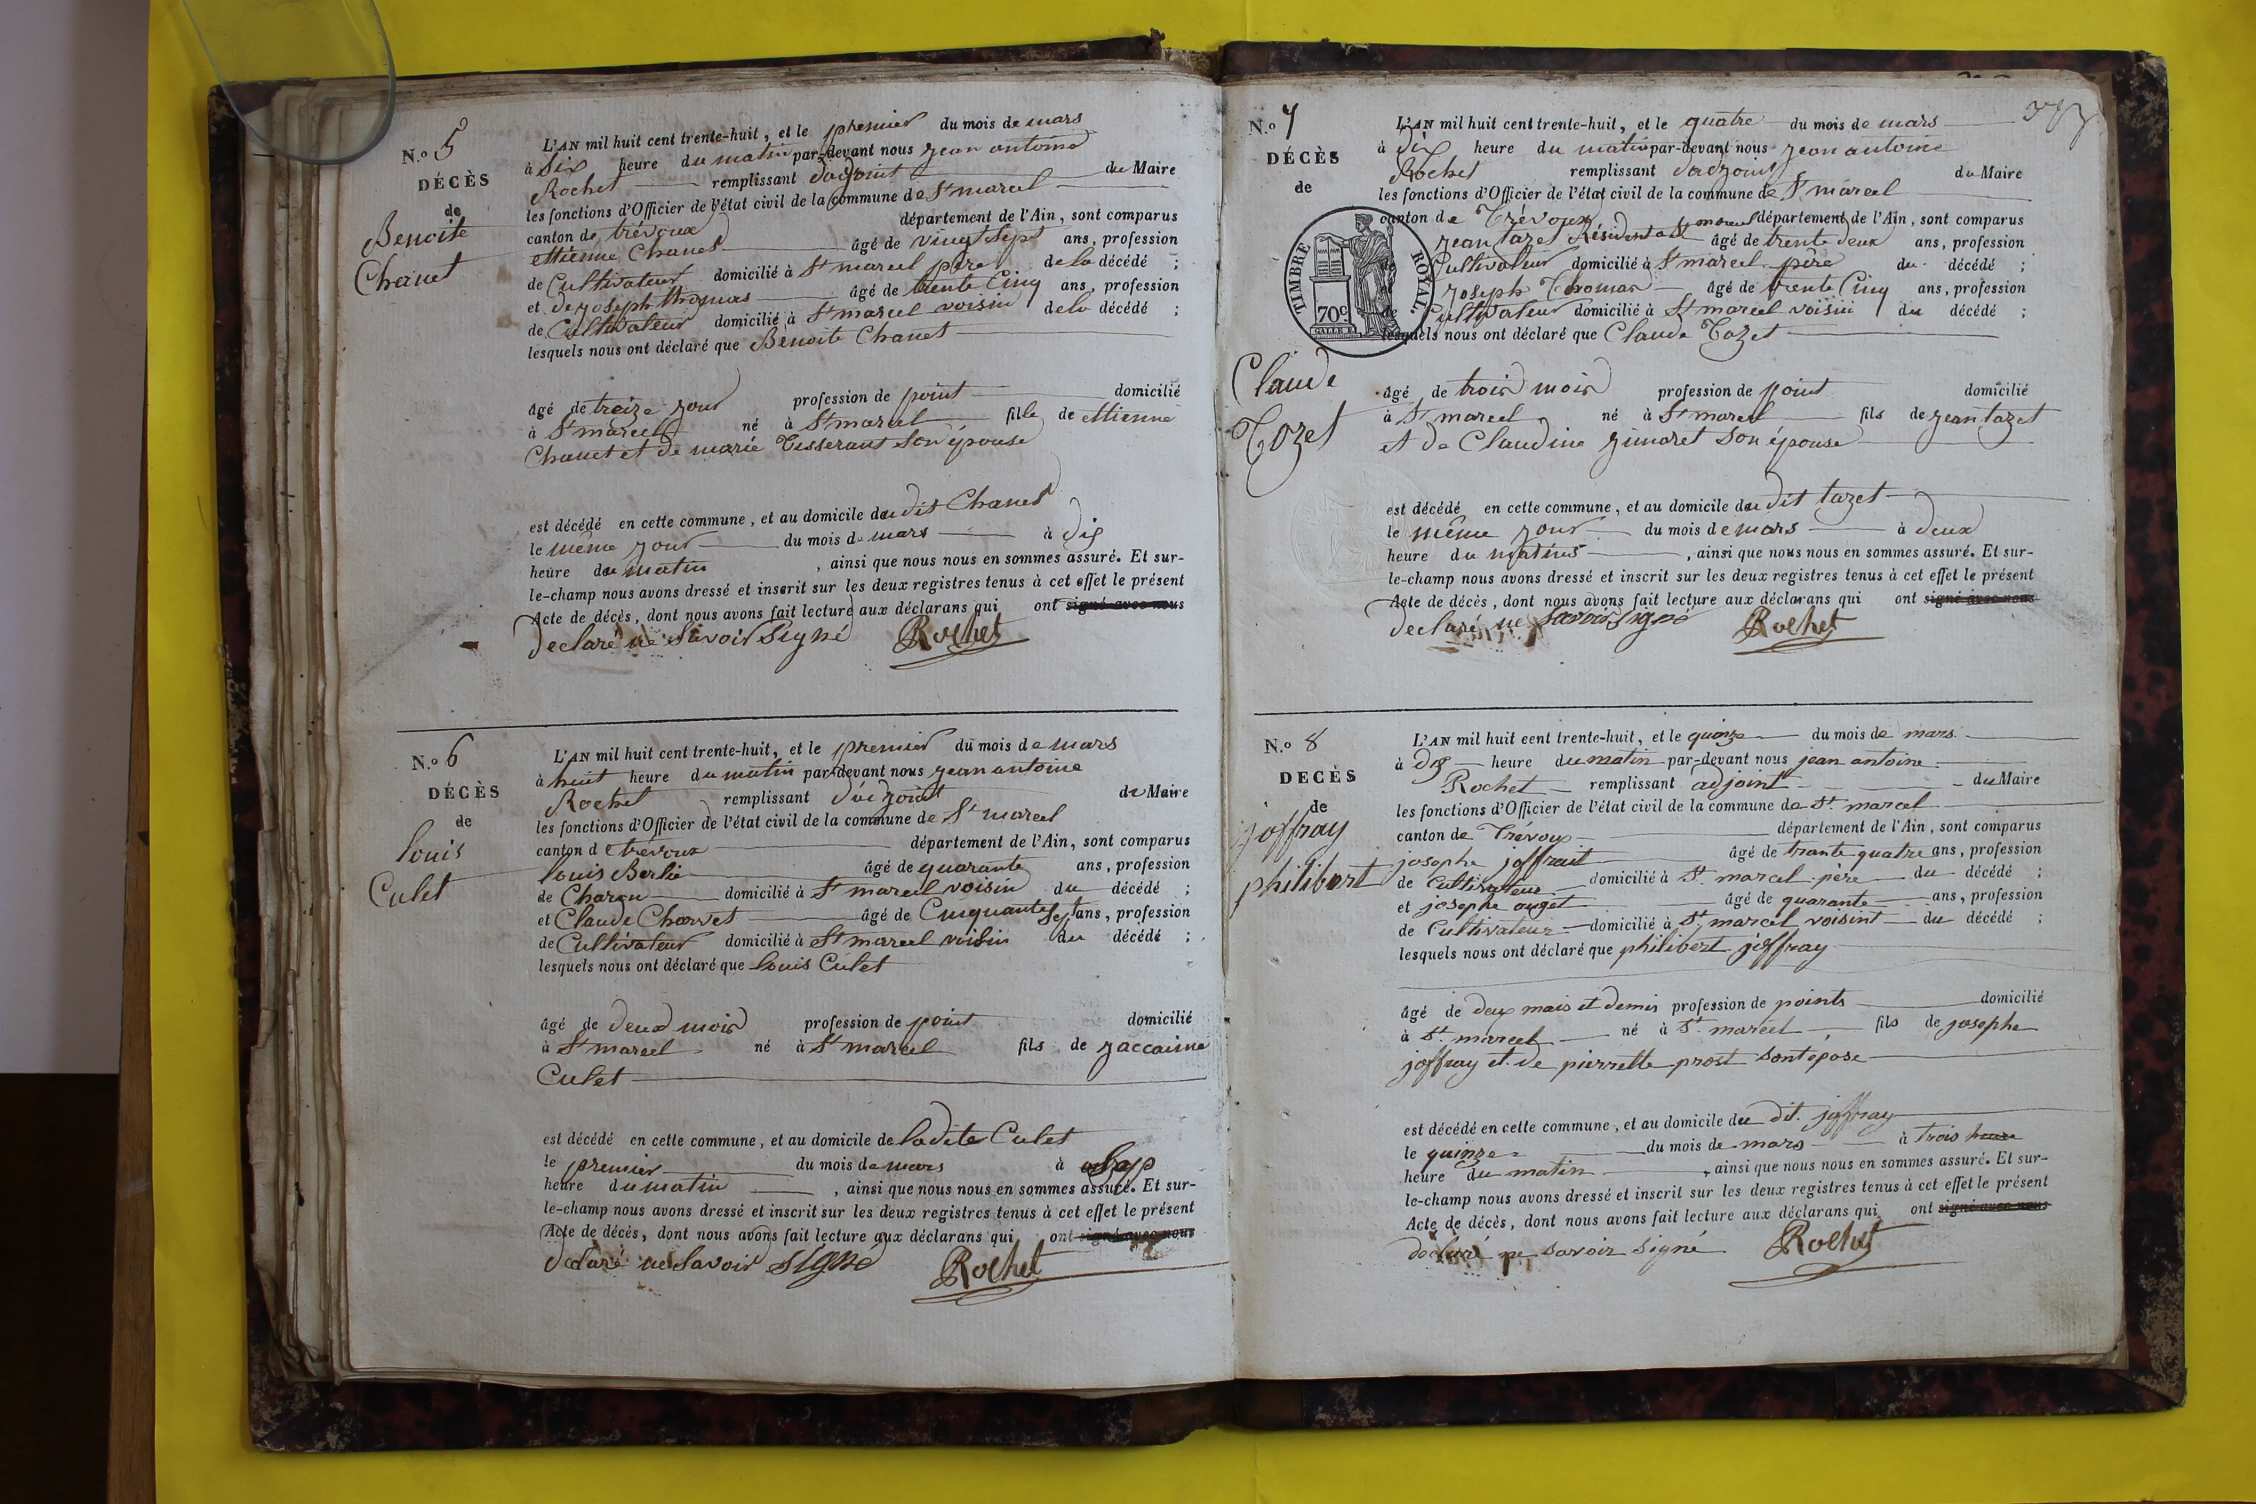 N.o 5
DÉCÈS
de
Benoite
Chanet
L'AN mil huit cent trente-huit, et le premier du mois de mars
à Six heure du matin par-devant nous jean antoine
Rochet remplissant d'adjoint du Maire
les fonctions d'Officier de l'état civil de la commune de St marcel
canton de trévoux département de l'Ain, sont comparus
ettienne Chanet âgé de vingt sept ans, profession
de Cultivateur domicilié à St marcel père de la décédé ;
et de joseph thomas âgé de trente Cinq ans, profession
de Cultivateur domicilié à St marcel voisin de la décédé ;
lesquels nous ont déclaré que Benoite Chanet
âgé de treize jour profession de point domicilié
à St marcel né à St marcel fille de ettienne
Chanet et de marie Tisserant Son épouse
est décédé en cette commune, et au domicile du dit Chanet
le même jour du mois de mars à dix
heure du matin, ainsi que nous nous en sommes assuré. Et sur-
le-champ nous avons dressé et inscrit sur les deux registres tenus à cet effet le présent
Acte de décès, dont nous avons fait lecture aux déclarans qui ont signé avec nous
declaré ne Savoir Signé Rochet
N.o 6
DÉCÈS
de
louis
Culet
L'AN mil huit cent trente-huit, et le premier du mois de mars
à huit heure du matin par-devant nous jean antoine
Rochet remplissant d'adjoint du Maire
les fonctions d'Officier de l'état civil de la commune de St marcel
canton de trévoux département de l'Ain, sont comparus
louis Berlie âgé de quarante ans, profession
de Charon domicilié à St marcel voisin du décédé ;
et Claude Charvet âgé de Cinquante Sept ans, profession
de Cultivateur domicilié à St marcel voisin du décédé ;
lesquels nous ont déclaré que louis Culet
âgé de deux mois profession de point domicilié
à St marcel né à St marcel fils de
Culet
est décédé en cette commune, et au domicile de ladite Culet
le premier du mois de mars à
heure du matin, ainsi que nous nous en sommes assuré. Et sur-
le-champ nous avons dressé et inscrit sur les deux registres tenus à cet effet le présent
Acte de décès, dont nous avons fait lecture aux déclarans qui ont signé avec nous
declaré ne Savoir signé Rochet
N.o 7
DÉCÈS
de
Claude
Tozet
TIMBRE ROYAL.
70c.
L'AN mil huit cent trente-huit, et le quatre du mois de mars
à dix heure du matin par-devant nous jean antoine
Rochet remplissant d'adjoint du Maire
les fonctions d'Officier de l'état civil de la commune de St marcel
canton de Trévoux département de l'Ain, sont comparus
jean tazet Résident a St marcel âgé de trente deux ans, profession
de Cultivateur domicilié à St marcel père du décédé ;
joseph Thomas âgé de trente Cinq ans, profession
de Cultivateur domicilié à St marcel voisin du décédé ;
lesquels nous ont déclaré que Claude Tozet
âgé de trois mois profession de point domicilié
à St marcel né à St marcel fils de jean tazet
et de Claudine jimaret Son épouse
est décédé en cette commune, et au domicile du dit tazet
le même jour du mois de mars à deux
heure du matins, ainsi que nous nous en sommes assuré. Et sur-
le-champ nous avons dressé et inscrit sur les deux registres tenus à cet effet le présent
Acte de décès, dont nous avons fait lecture aux déclarans qui ont signé avec nous
declaré ne Savoir signé Rochet
N.o 8
DÉCÈS
de
joffray
philibert
L'AN mil huit cent trente-huit, et le quinze du mois de mars
à dix heure du matin par-devant nous jean antoine
Rochet remplissant adjoint du Maire
les fonctions d'Officier de l'état civil de la commune de St. marcel
canton de Trévoux département de l'Ain, sont comparus
josephe joffrait âgé de trante quatre ans, profession
de Cultivateur domicilié à St. marcel père du décédé ;
et josephe ouget âgé de quarante ans, profession
de Cultivateur domicilié à St. marcel voisint du décédé ;
lesquels nous ont déclaré que philibert joffray
âgé de deux mais et demis profession de points domicilié
à St. marcel né à St. marcel fils de josephe
joffray et de pierrette prost sont épose
est décédé en cette commune, et au domicile du dit. joffray
le quinze du mois de mars à trois heure
heure du matin, ainsi que nous nous en sommes assuré. Et sur-
le-champ nous avons dressé et inscrit sur les deux registres tenus à cet effet le présent
Acte de décès, dont nous avons fait lecture aux déclarans qui ont signé avec nous
déclaré ne savoir signé Rochet